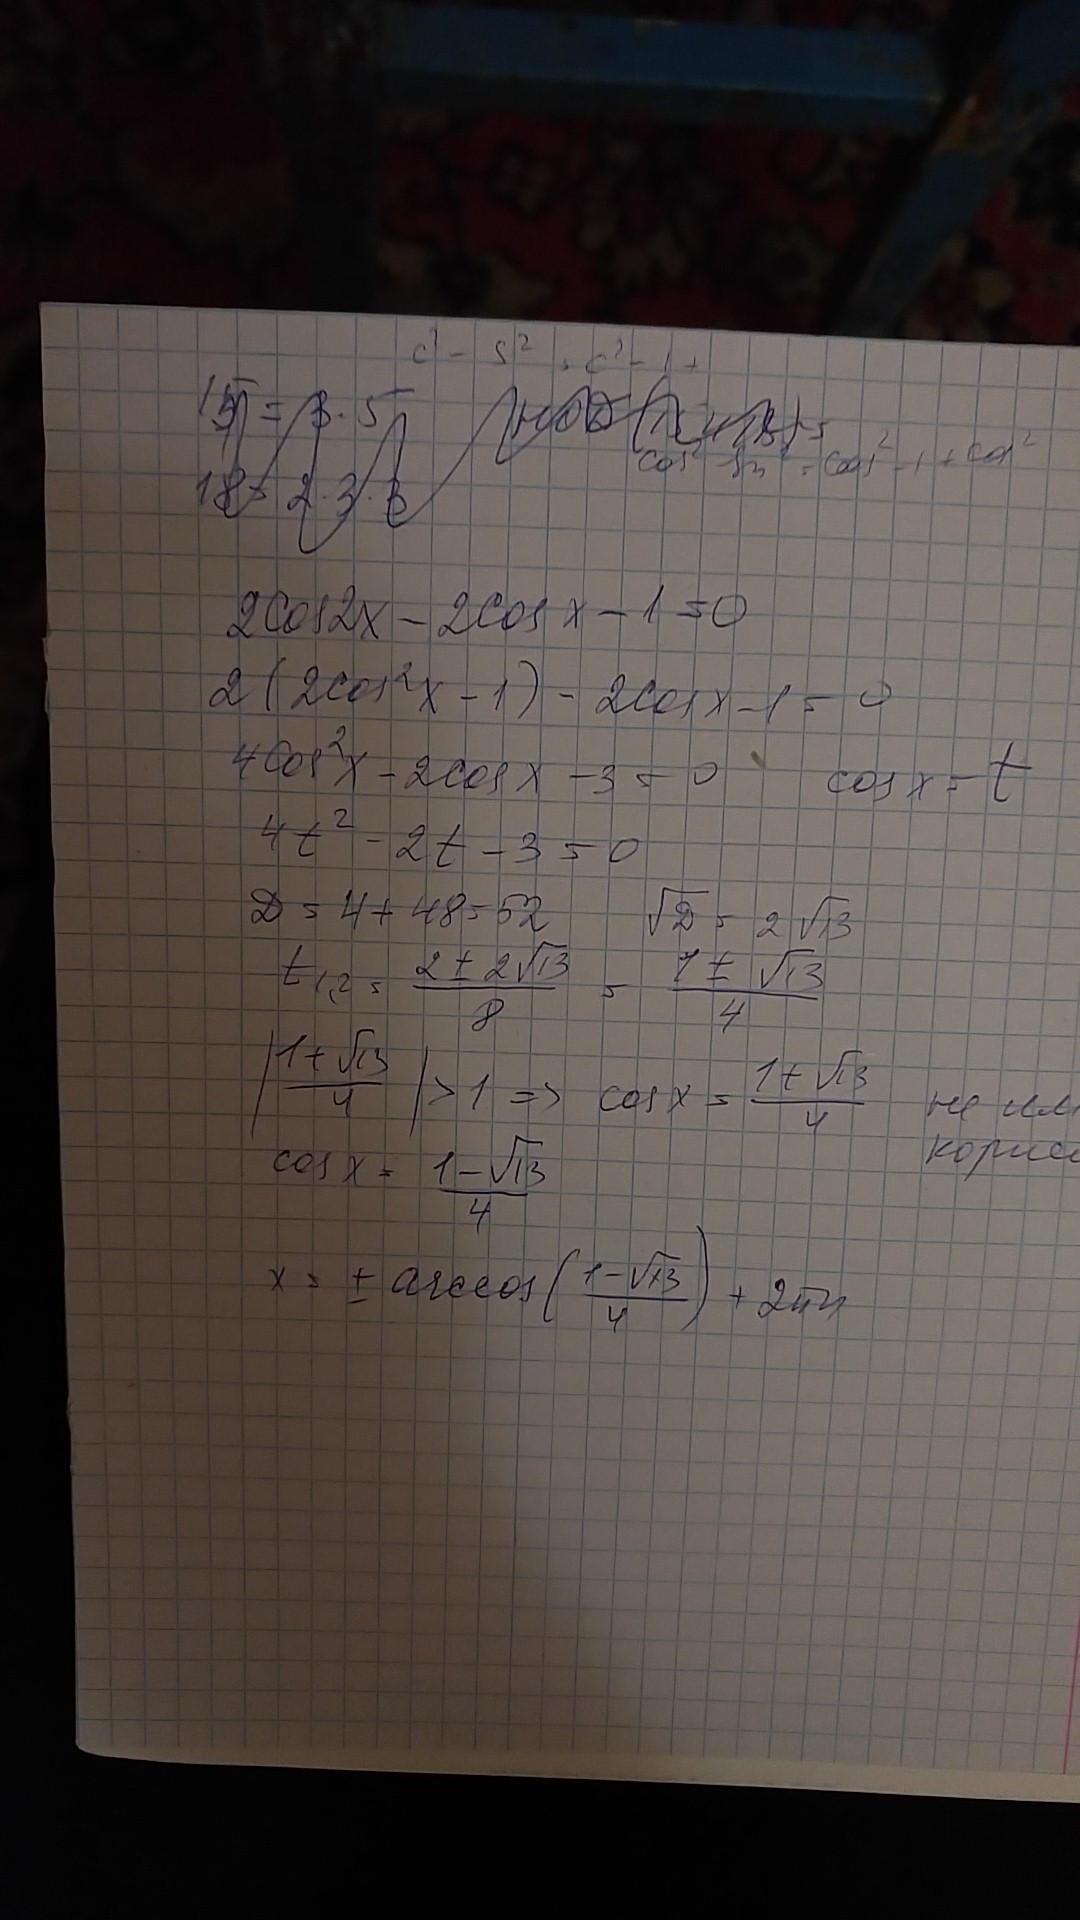 c² - s² = c² - 1 +
15 = 3·5
cos² - sin² = cos² - 1 + cos²
18 = 2·3·3
2cos2x - 2cosx - 1 = 0
2(2cos²x - 1) - 2cosx - 1 = 0
4cos²x - 2cosx - 3 = 0 cosx = t
4t² - 2t - 3 = 0
D = 4 + 48 = 52 √D = 2√13
t₁,₂ = (2 ± 2√13)/8 = (1 ± √13)/4
|(1 + √13)/4| > 1 => cosx = (1 + √13)/4 не
cosx = (1 - √13)/4
x = ± arccos((1 - √13)/4) + 2πn